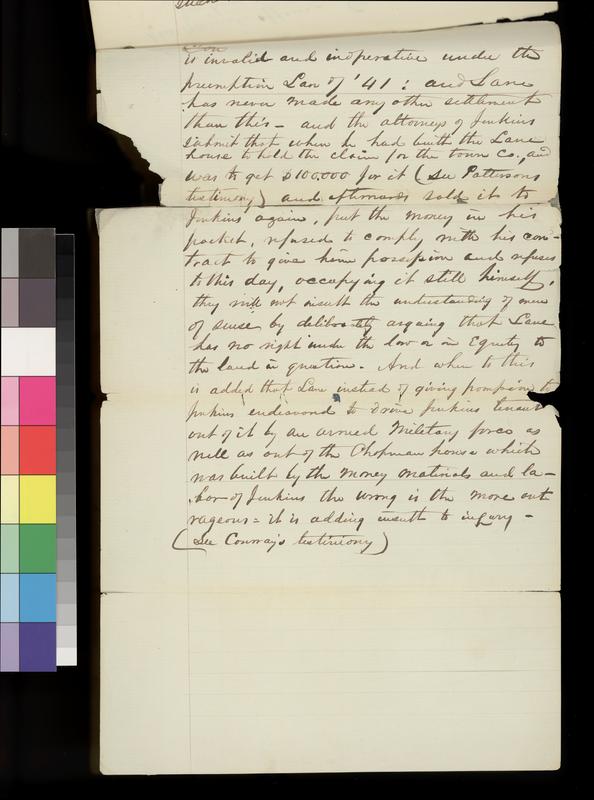 is invalid and inoperative under the
preemption Law of '41: and Lane
has never made any other settlement
than this - and the attorneys of Jenkins
submit that when he had built the Lane
house to hold the claim for the town Co., and
was to get $100.000 for it (See Pattersons
testimony) and afterwards sold it to
Jenkins again, put the money in his
pocket, refused to comply with his con-
tract to give him possession and refuses
to this day, occupying it still himself,
they will not insult the understanding of men
of sense by deliberately arguing that Lane
has no right under the law or in Equity to
the land in question. And when to this
is added that Lane instead of giving possession to
Jenkins endeavored to drive Jenkins tenant
out of it by an armed Military force as
well as out of the Chapman house which
was built by the money materials and la-
bor of Jenkins the wrong is the more out
rageous = it is adding insult to injury -
(See Conway's testimony)